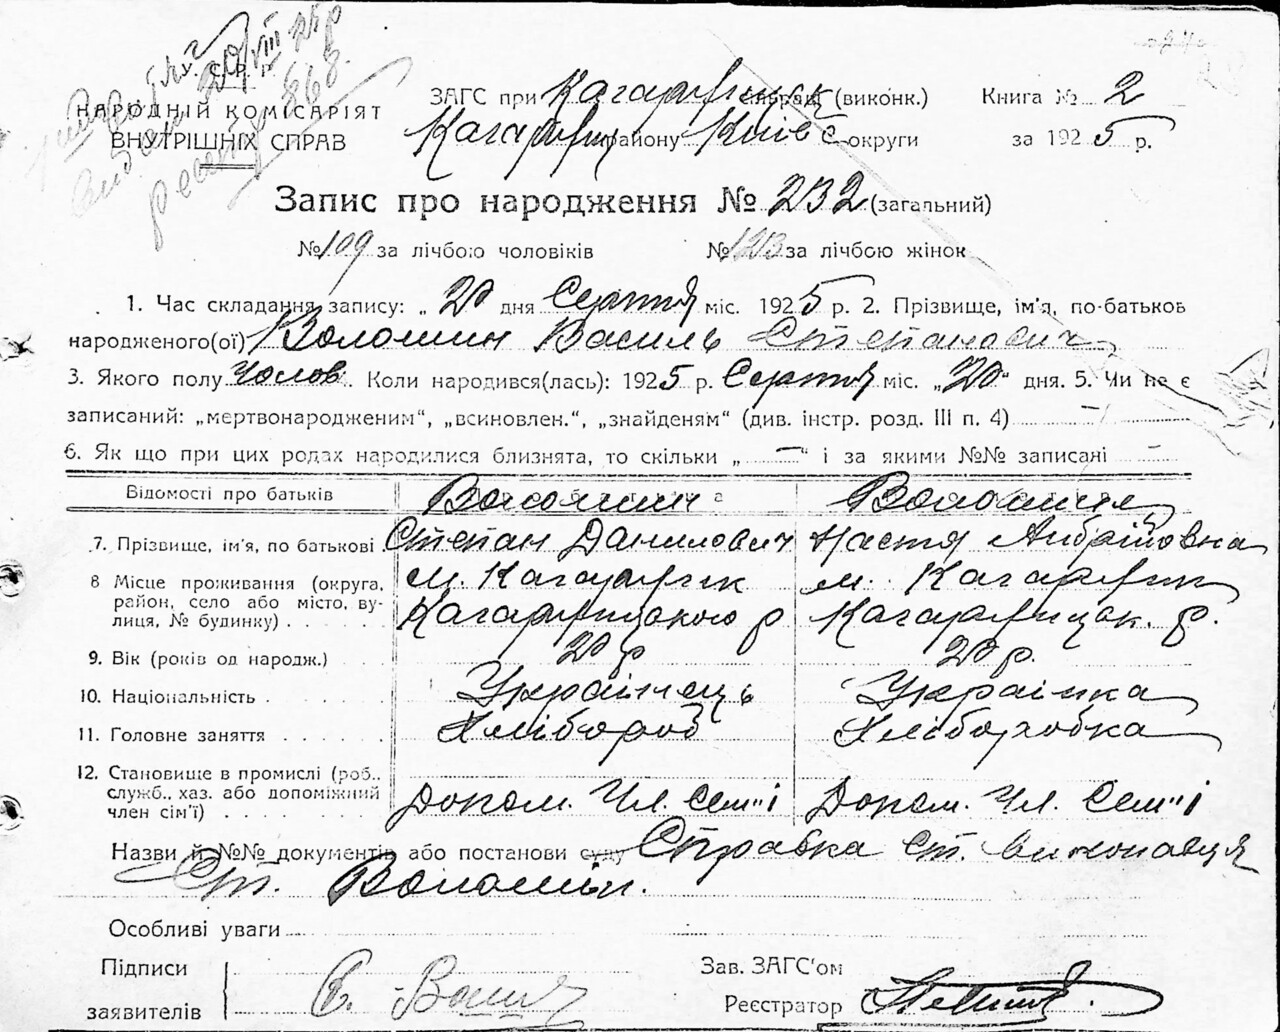 У. С. Р. Р.
НАРОДНІЙ КОМІСАРІЯТ
ВНУТРІШНІХ СПРАВ
ЗАГС при Кагарлицьк сільраді (виконк.) Книга № 2
Кагарлиц району Київс округи за 1925 р.
Запис про народження № 232 (загальний)
№ 109 за лічбою чоловіків № 123 за лічбою жінок
1. Час складання запису: „20 дня Серпня міс. 1925 р. 2. Прізвище, ім'я, по-батьков
народженого(ої) Волошин Василь Степанович
3. Якого полу Чолов. Коли народився(лась): 1925 р. Серпня міс. „20“ дня. 5. Чи не є
записаний: „мертвонародженим“, „всиновлен.“, „знайденям“ (див. інстр. розд. III п. 4) —
6. Як що при цих родах народилися близнята, то скільки „ — “ і за якими №№ записані —
Відомості про батьків Волошин Волошина
7. Прізвище, ім'я, по батькові Степан Данилович Настя
8 Місце проживання (округа, м. Кагарлик м. Кагарлик
район, село або місто, ву-
лиця, № будинку) Кагарлицького р Кагарлицьк. р.
9. Вік (років од народж.) 20 р 20 р.
10. Національність Українець Українка
11. Головне заняття Хлібороб Хліборобка
12. Становище в промислі (роб.,
служб., хаз. або допоміжний
член сім'ї) Допом. Чл. Сем"і Допом. Чл. Сем"і
Назви й №№ документів або постанови суду Справка ст. виконавця
Ст. Волошин.
Особливі уваги
Підписи
заявителів С. Волош
Зав. ЗАГС'ом
Реєстратор